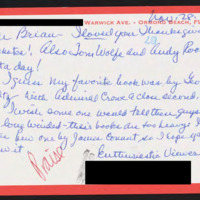 Warwick Ave. - Ormond Beach, FL
Nov. 28,
28
r Brian - I loved your Thanksgiv
! Also Tom Wolfe and Andy Roo
ta day!
I guess my favorite book was by Go
ty - with Admiral Crowe a close second.
I wish some one would tell these guys
long winded - their books are too heavy
new one by James Conant so I hope you
w it
Praise
Enthusiastic Viewer